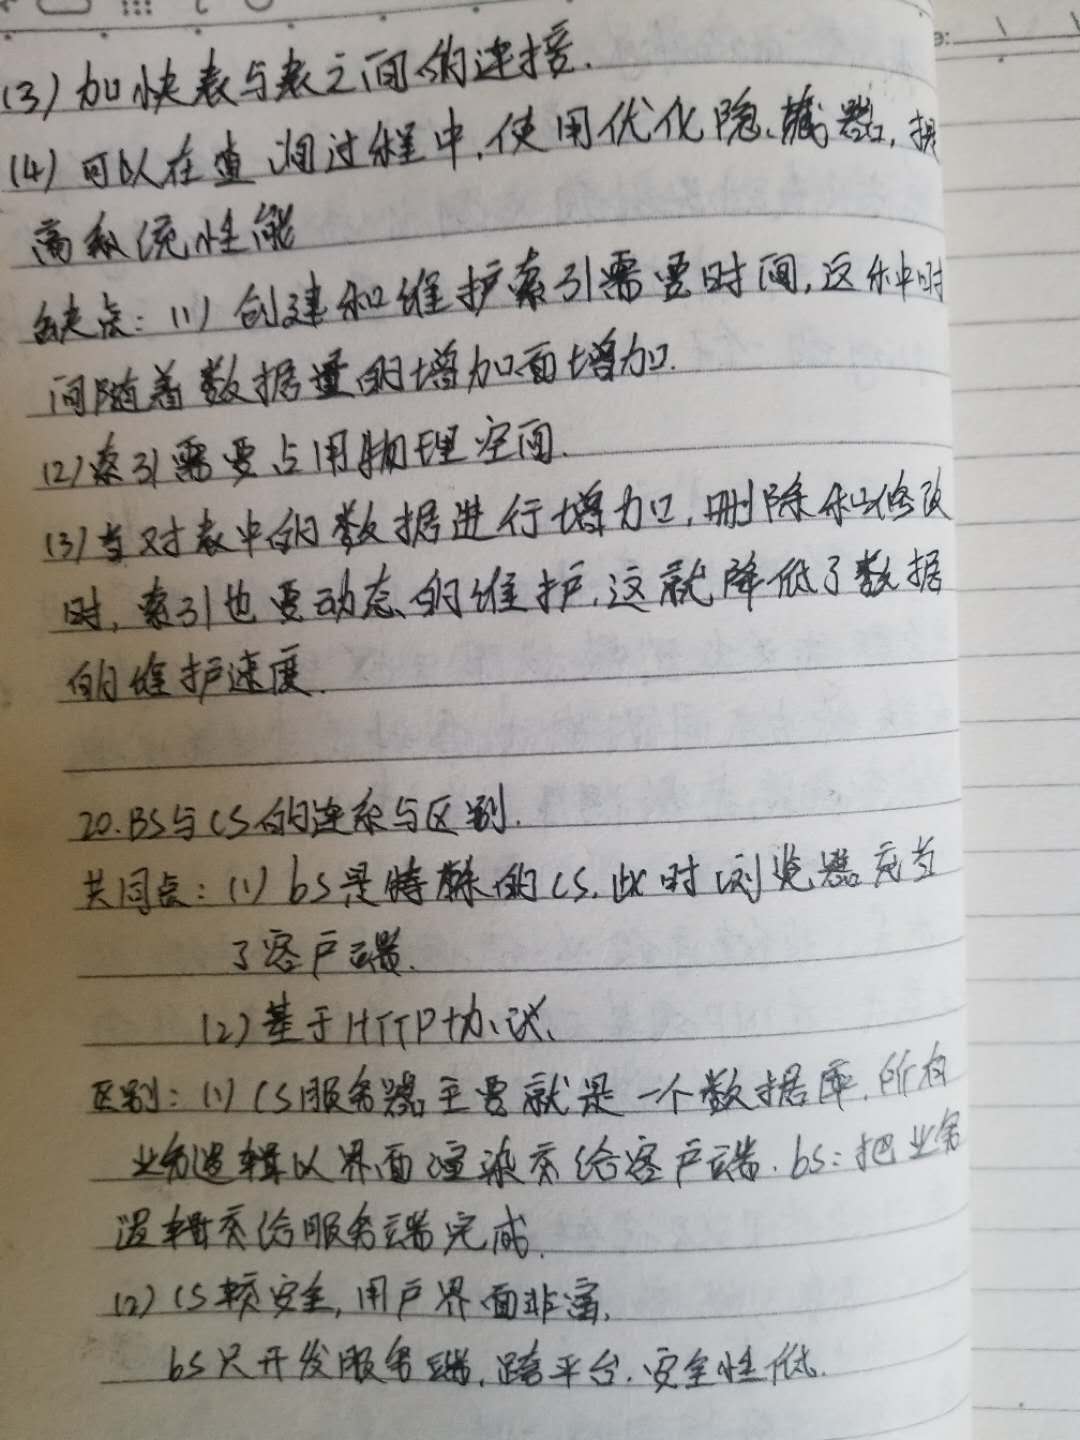 (3) 加快表与表之间的连接.
(4) 可以在查询过程中,使用优化隐藏器,提
高系统性能
缺点: (1) 创建和维护索引需要时间,这种时
间随着数据量的增加而增加.
(2) 索引需要占用物理空间.
(3) 当对表中的数据进行增加,删除和修改
时,索引也要动态的维护,这就降低了数据
的维护速度.
20.BS与CS的连系与区别.
共同点: (1) bS是特殊的CS,此时浏览器充当
了客户端.
(2) 基于HTTP协议、
区别: (1) CS服务器主要就是一个数据库,所有
业务逻辑以界面渲染交给客户端. bS: 把业务
逻辑交给服务端完成.
(2) CS较安全,用户界面丰富,
bS只开发服务端,跨平台.安全性低.